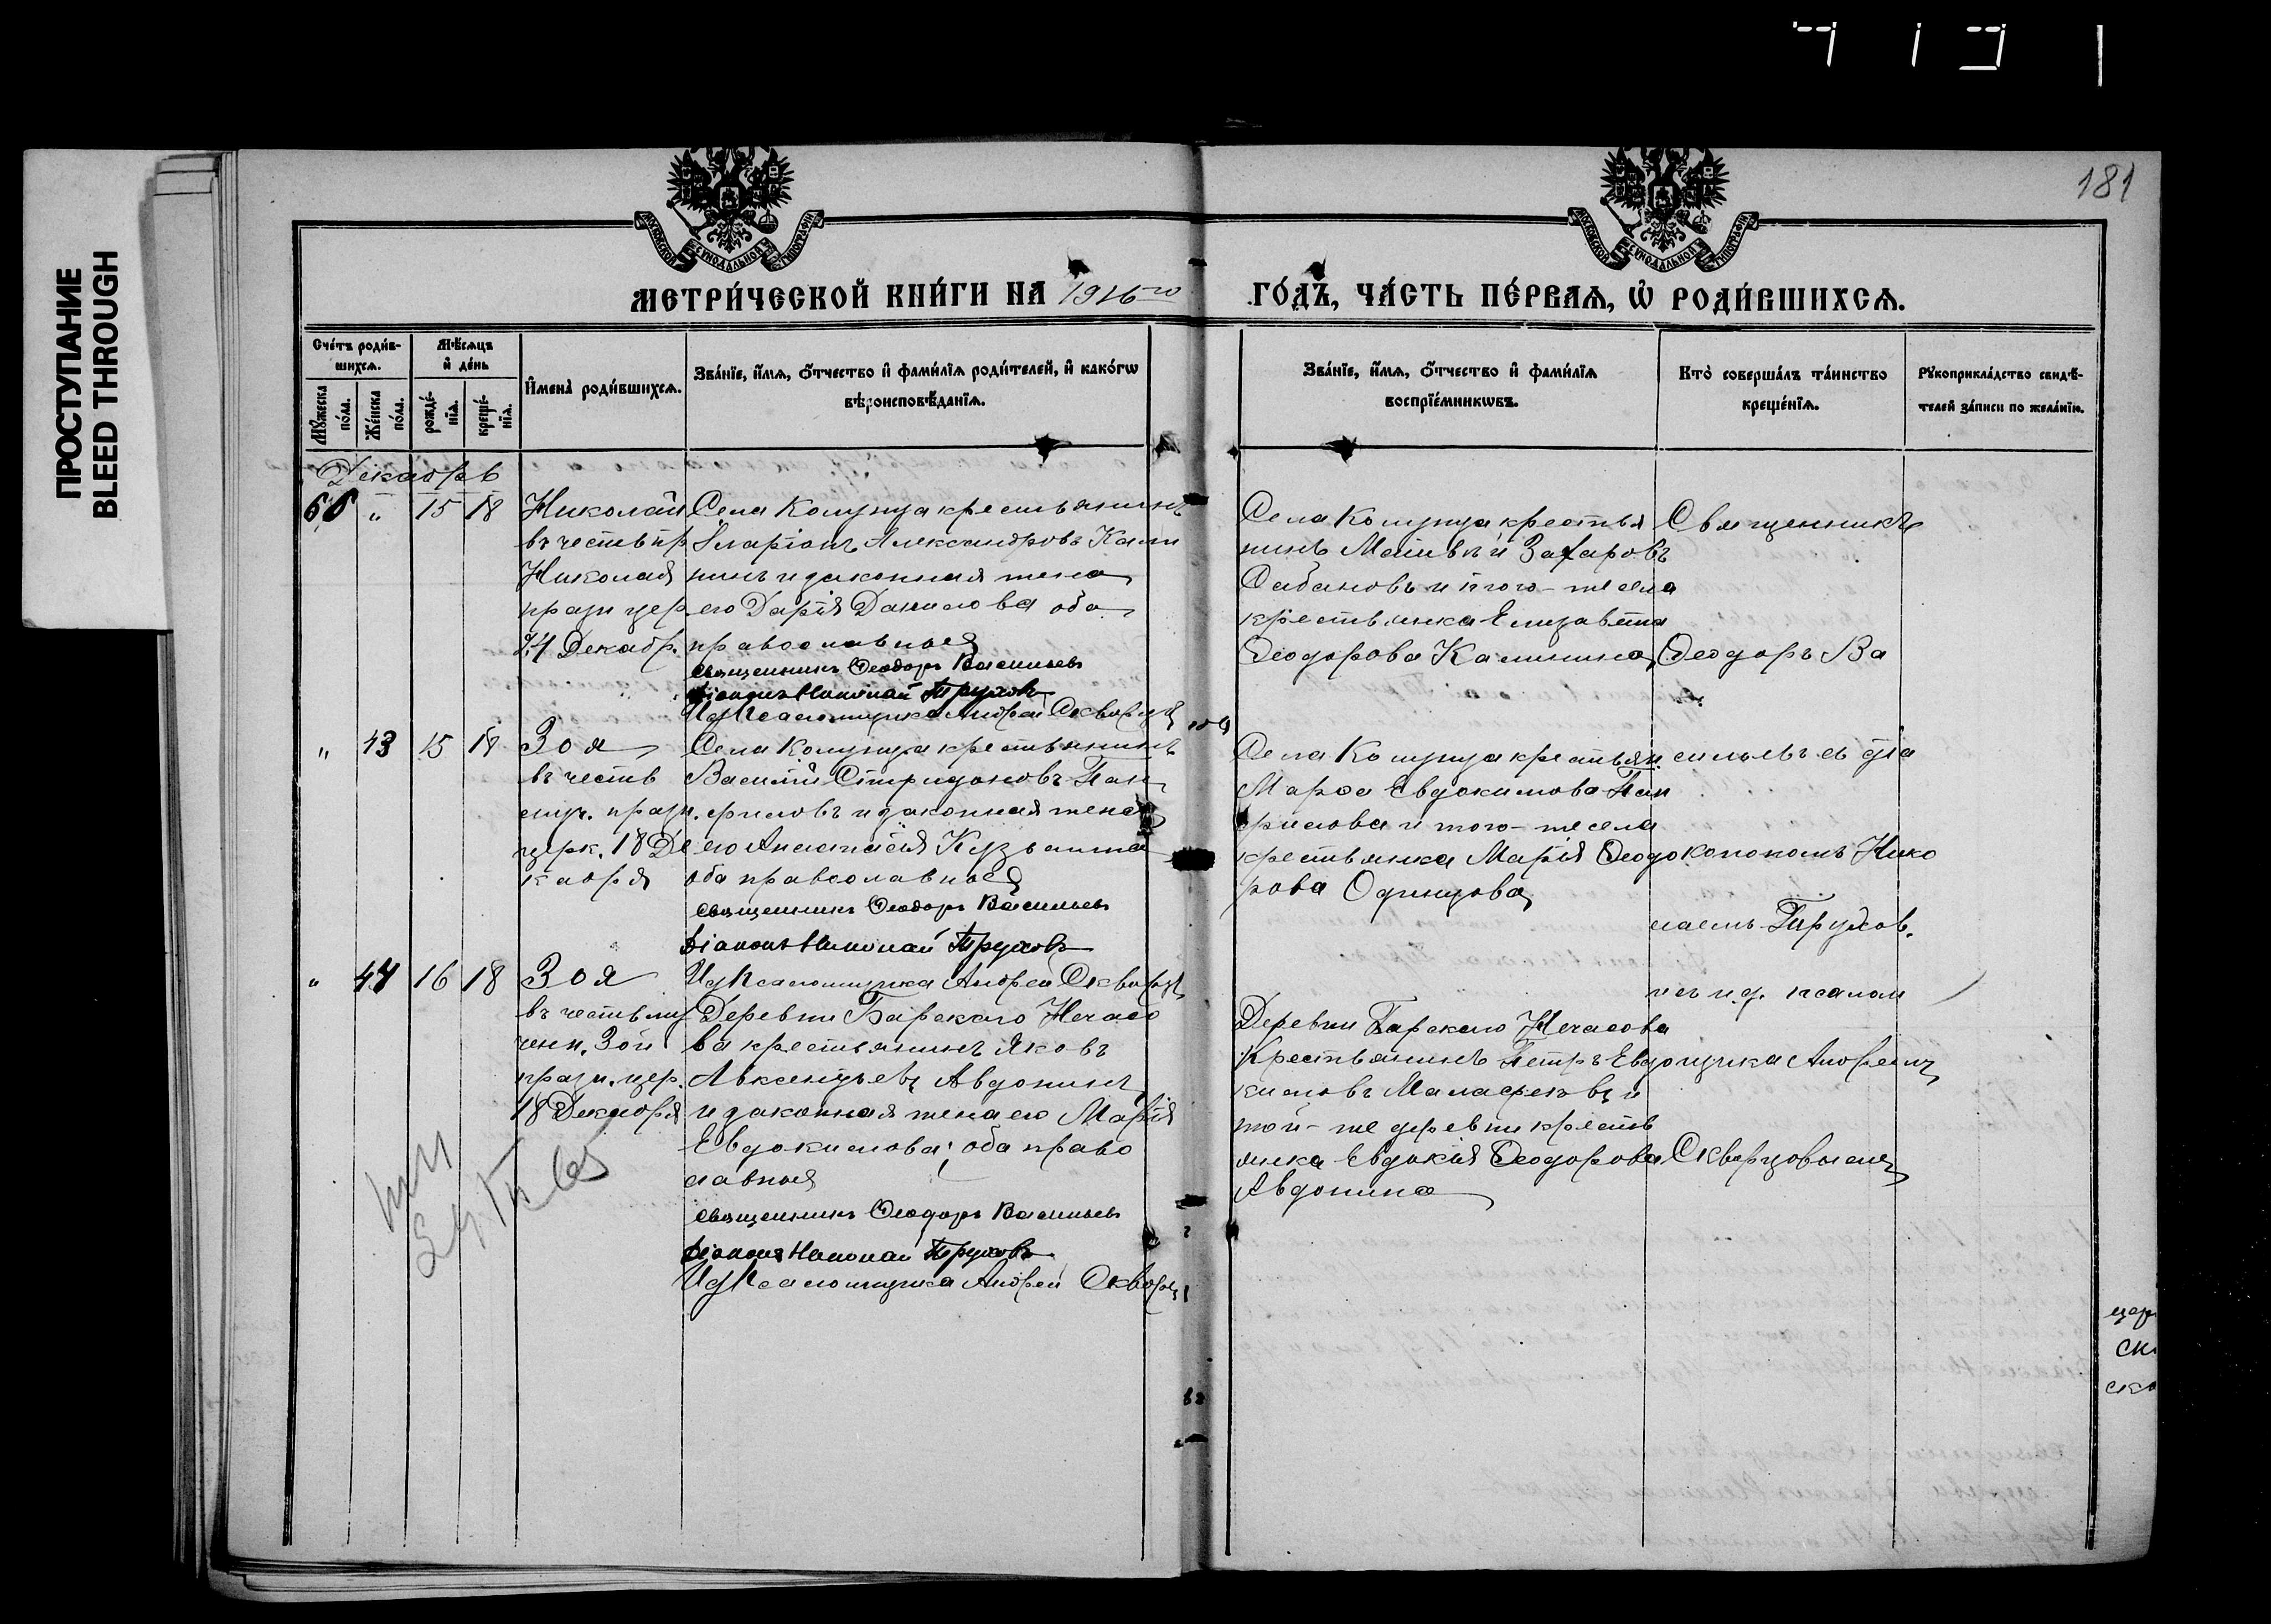 181
ПРОСТУПАНИЕ
BLEED THROUGH
МЕТРИ́ЧЕСКОЙ КНИ́ГИ НА 1916го ГО́ДЪ, ЧА́СТЬ ПЕ́РВАЯ, Ѡ РОДИ́ВШИХСЯ.
Сче́тъ роди́в-
шихся.
Мѣ́сяцъ
и҆ де́нь
Мꙋ́жеска по́ла.
Же́нска по́ла.
рожде́-
нїѧ.
креще́-
нїѧ.
И҆мена̀ роди́вшихся.
Зва́нїе, и҆́мя, о҆́тчество и҆ фами́лїя роди́телей, и҆ како́гѡ
вѣроисповѣ́данїя.
Зва́нїе, и҆́мя, о҆́тчество и҆ фами́лїя
воспрїе́мникѡвъ.
Кто̀ соверша́лъ та́инство
креще́нїя.
Рꙋкоприкла́дство свидѣ́-
телей за́писи по жела́нїю.
Декабрь
60 " 15 18 Николай
въ честь пр
Николая
празн цер
Декабр.
Села Колунца крестьянинъ
Иларіонъ Александровъ Кали
нинъ и законная жена
его Дарія Данилова оба
православные
Священникъ Ѳеодоръ Васильевъ
Діаконъ Николай Труховъ
Ид Псаломщика Андрей Скворцовъ
Села Колунца крестья
нинъ Матвѣй Захаровъ
Сабановъ и того-же села
крестьянка Елизавета
Ѳеодорова Калинина
Священникъ
Ѳеодоръ Ва
" 43 15 18 Зоя
въ честь
муч. празн.
церк. 18 Де
кабря
Села Колунца крестьянинъ
Василій Спиридоновъ Пан
филовъ и законная жена
его Анастасія Кузьмина
оба православные
Священникъ Ѳеодоръ Васильевъ
Діаконъ Николай Труховъ
Ид Псаломщика Андрей Скворцовъ
Села Колунца крестьян.
Марѳа Евдокимова Пан
филова и того-же села
крестьянка Марія Ѳеодо
рова Одинцова
сильевъ съ діа
кономъ Нико
лаемъ Трухов.
" 44 16 18 Зоя
въ честь му
чен. Зои
празн. цер.
18 Декабря
Деревни Барскаго Нечасо
ва крестьянинъ Яковъ
Авксентьевъ Авдонинъ
и законная жена его Марія
Евдокимова; оба право
славные
Священникъ Ѳеодоръ Васильевъ
Діаконъ Николай Труховъ
Ид Псаломщика Андрей Скворцовъ
Деревни Барскаго Нечасова
Крестьянинъ Петръ Евдо
кимовъ и
той-же деревни кресть
янка Евдокія Ѳеодорова
Авдонина
и съ и.д. псалом
щика Андреемъ
Скворцовымъ
цер
ск
ско